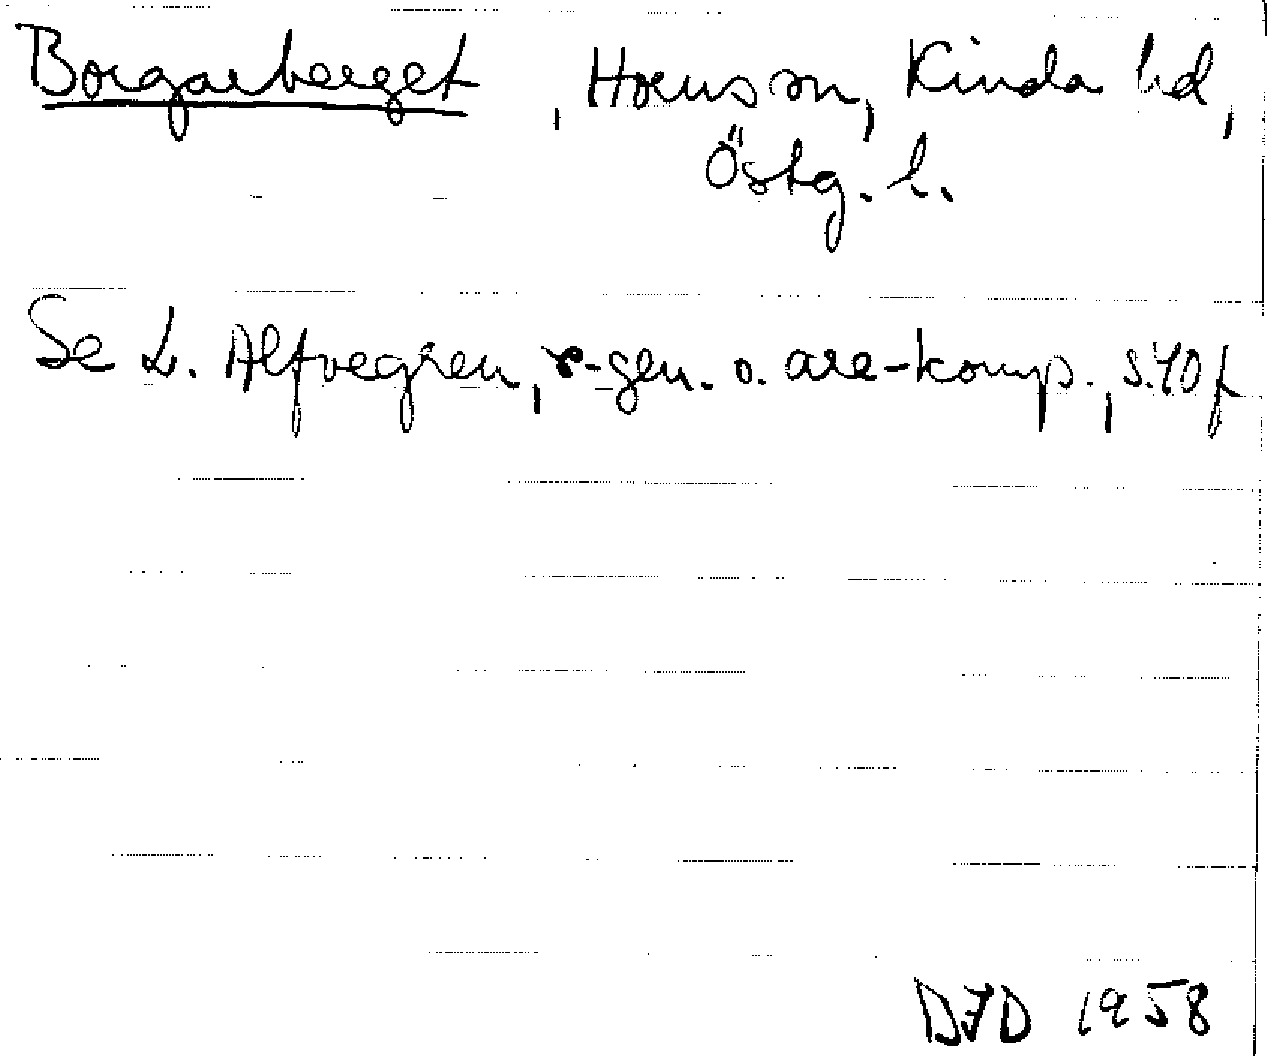 Borgarberget, Horns sn, Kinda hd,
Östg. l.
Se L. Alfvegren, r-gen. o. are-komp., s. 40 f
DFD 1958